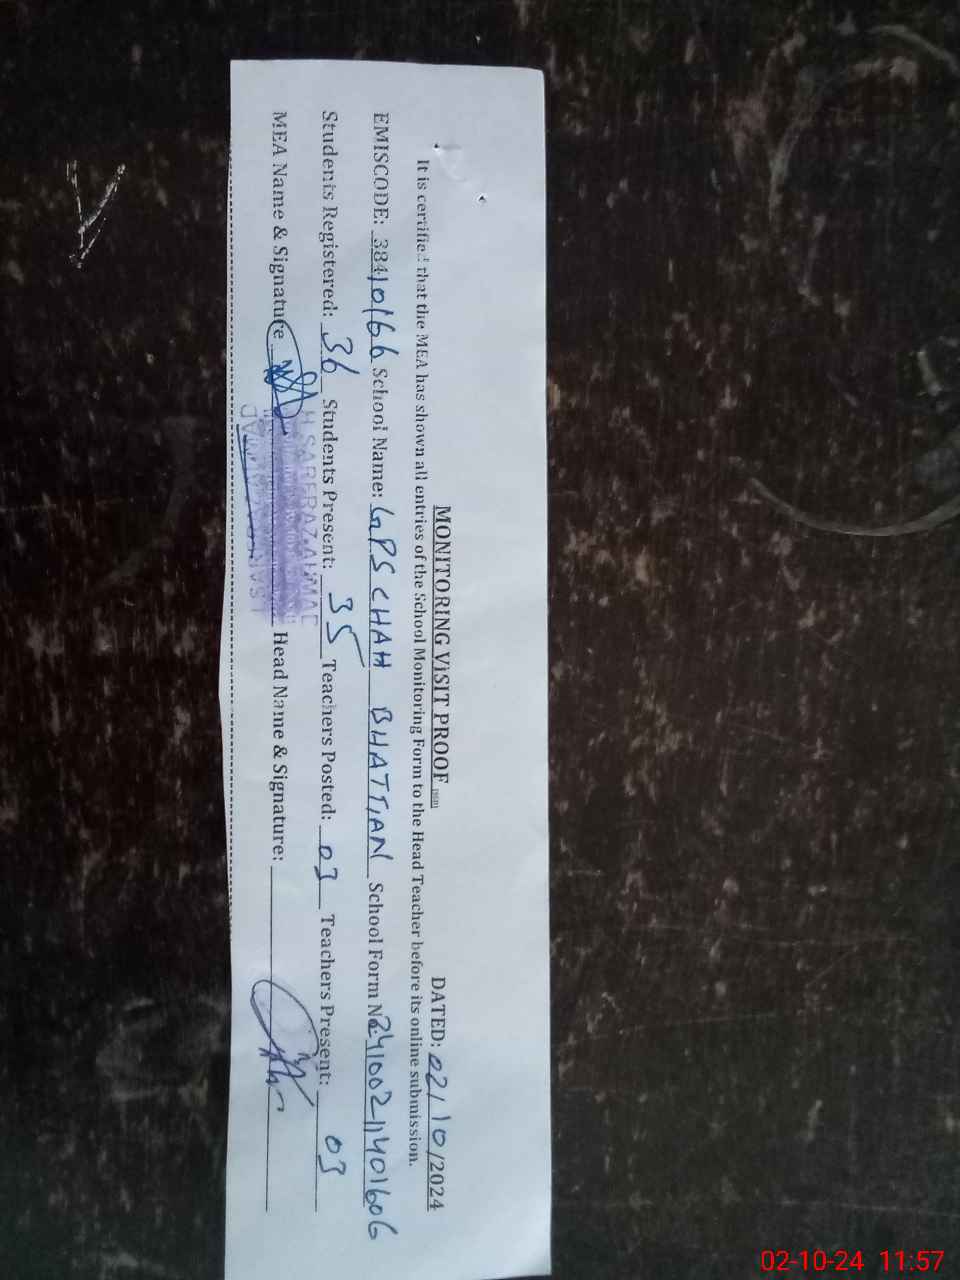 MONITORING VISIT PROOF
DATED: 02/10/2024
It is certified that the MEA has shown all entries of the School Monitoring Form to the Head Teacher before its online submission.
EMISCODE: 38410166 School Name: GPS CHAH BHATTIAN School Form No. 24100211401606
Students Registered: 36 Students Present: 35 Teachers Posted: 03 Teachers Present: 03
MEA Name & Signature Head Name & Signature:
02-10-24 11:57